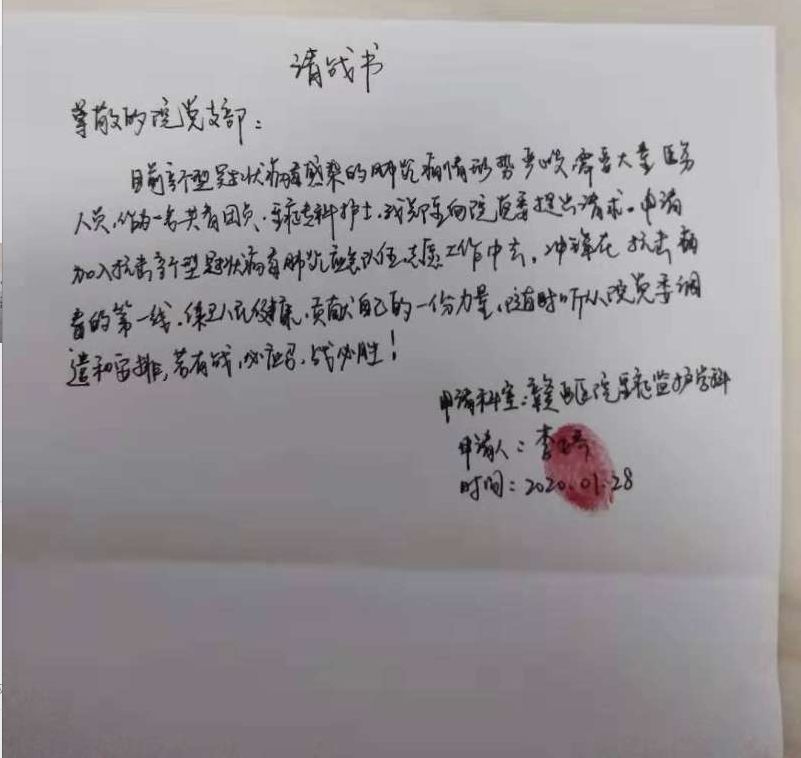 请战书
尊敬的院党支部：
目前新型冠状病毒感染的肺炎疫情形势严峻，需要大量医务
人员，作为一名共青团员、重症专科护士，我郑重向院党委提出请求。申请
加入抗击新型冠状病毒肺炎应急队伍志愿工作中去，冲锋在抗击病
毒的第一线，保卫人民健康，贡献自己的一份力量，随时听从院党委调
遣和安排，若有战，必应召，战必胜！
申请科室：赣西医院重症监护学科
申请人：李
时间：2020.01.28